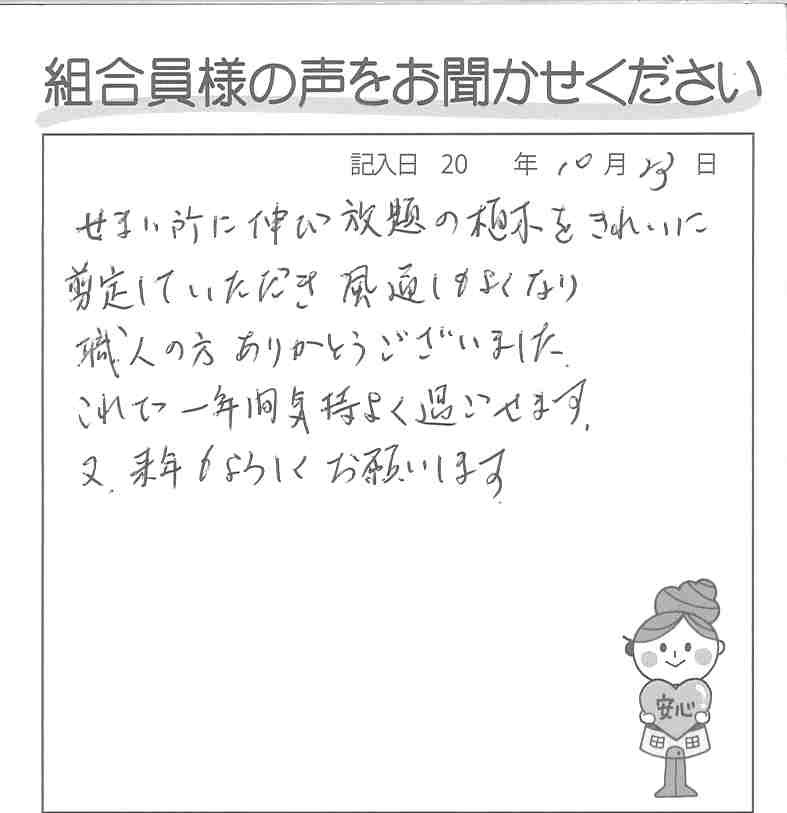 組合員様の声をお聞かせください
記入日 20 年 10月23日
せまい所に伸び放題の植木をきれいに
剪定していただき風通しもよくなり
職人の方ありがとうございました.
これで一年間気持よく過ごせます.
又.来年もよろしくお願いします.
安心